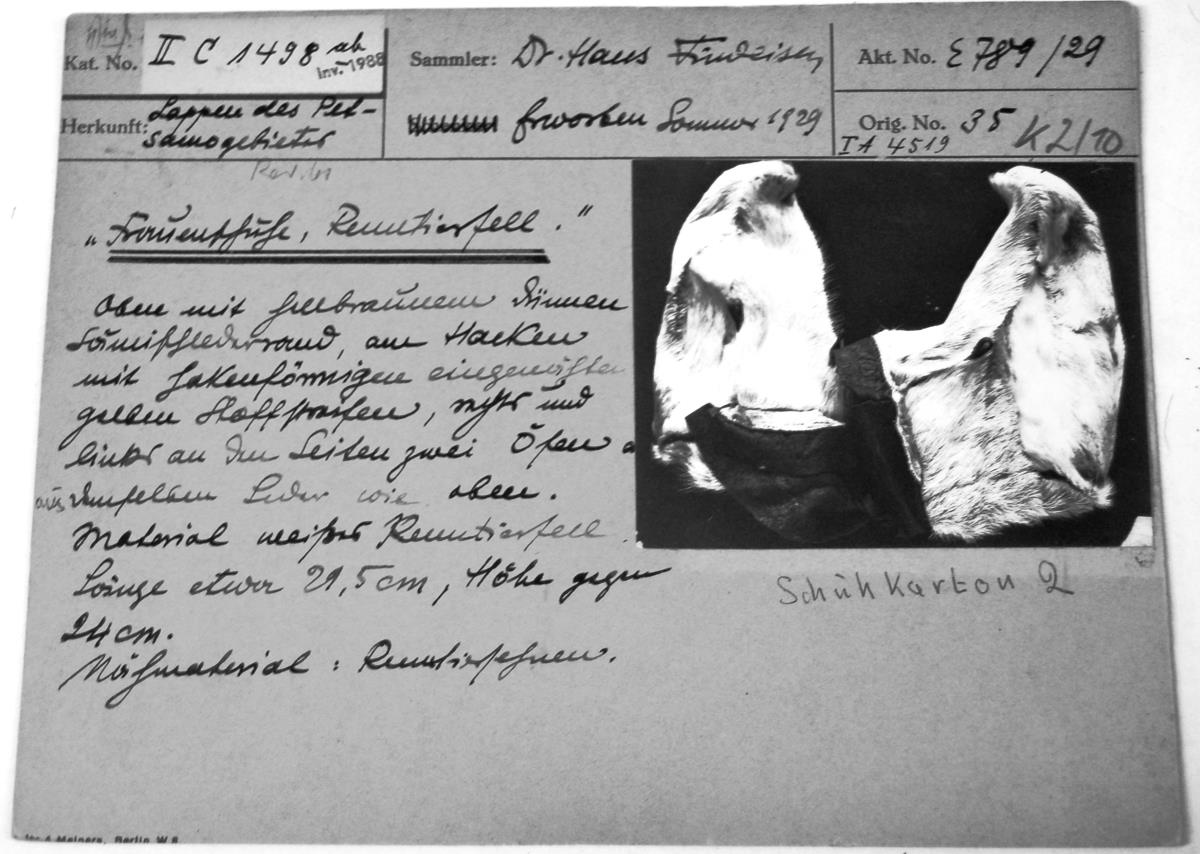 Kat. No. II C 1498 ab
Inv. 1988
Sammler: Dr. Hans Findeisen
Akt. No. E 789/29
Herkunft: Lappen des Pet-
samogebietes
erworben Sommer 1929
Orig. No. 35 K2/10
IA 4519
"Frauenschuhe, Renntierfell."
Oben mit hellbraunem dünnen
Sämischlederrand, am Hacken
mit hakenförmigen eingenähten
gelben Stoffstreifen, rechts und
links an den Seiten zwei Ösen
aus demselben Leder wie oben.
Material weißes Renntierfell.
Länge etwa 21,5 cm, Höhe gegen
24 cm.
Nähmaterial: Renntiersehnen.
Schuhkarton 2
Meiners, Berlin W 8